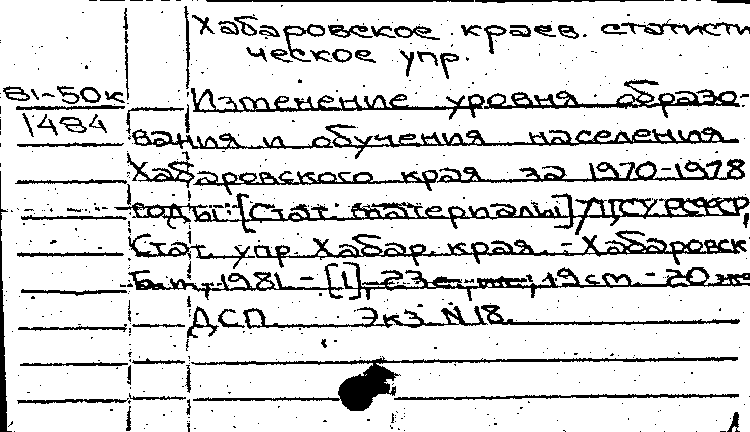 Хабаровское краев. статисти
ческое упр.
81-50к
1484
Изменение уровня образо-
вания и обучения населения
Хабаровского края за 1970-1978
годы: [Стат. материалы] / ЦСУ РСФСР,
Стат. упр. Хабар. края. - Хабаровск
Б.т., 1981 - [1], 23 с., 19 cm. - 20 экз
ДСП. Экз. N 18.